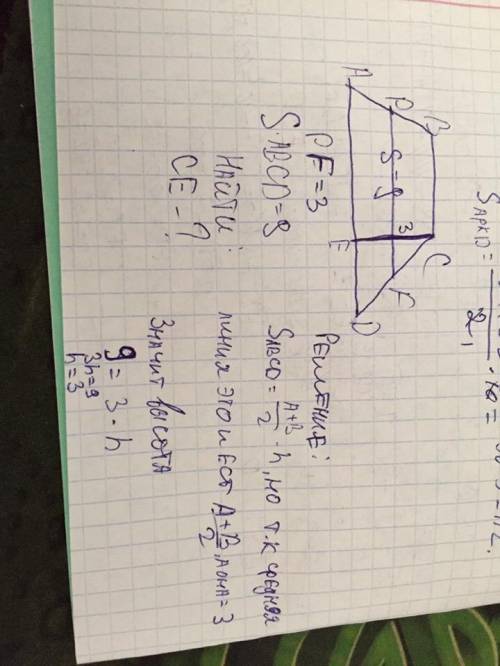 S APKD =
2
A P B
S = 9
3
E F C
D
PF = 3
S ABCD = 9
НАЙТИ:
CE - ?
РЕШЕНИЕ:
S ABCD = A+B/2 · h, но т.к средняя
линия это и есть A+B/2, а она = 3
Значит высота
9 = 3 · h
3h = 9
h = 3